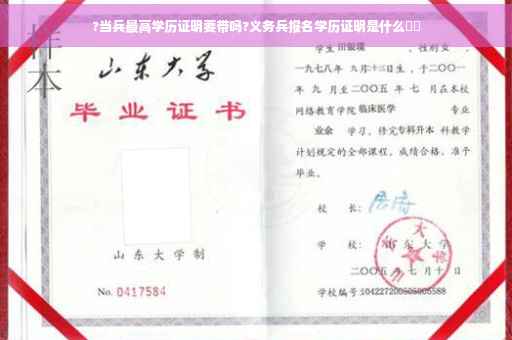 ?当兵最高学历证明要带吗?义务兵报名学历证明是什么
样本
山东大学
毕业证书
山东大学制
No. 0417584
学生
性别女，
一九七八年九月十三日生，于二〇〇一
年九月至二〇〇五年七月在本校
网络教育学院临床医学 专业
业余 学习，修完专科升本科教学
计划规定的全部课程，成绩合格，准予
毕业。
校长：
学校：山东大学
二〇〇五年七月十日
学校编号:104227200505005588